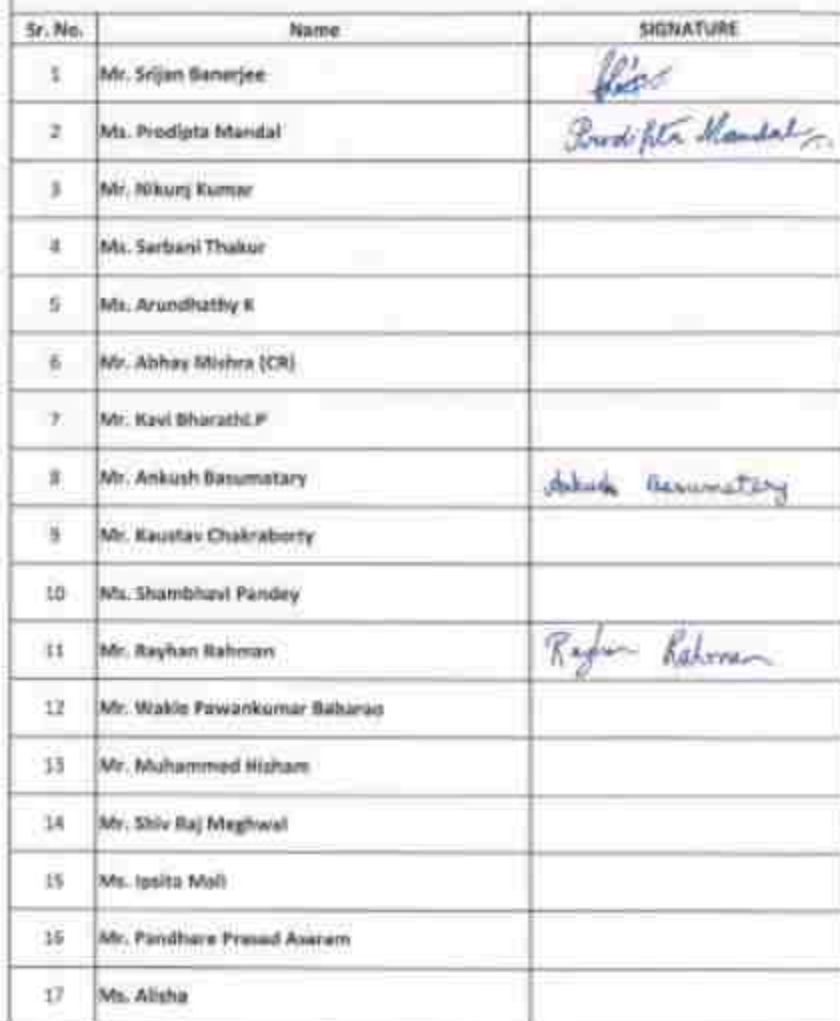 Sr. No. Name SIGNATURE
1 Mr. Srijan Banerjee
2 Ms. Prodipta Mandal Prodipta Mandal
3 Mr. Nikunj Kumar
4 Ms. Sarbani Thakur
5 Ms. Arundhathy K
6 Mr. Abhay Mishra (CR)
7 Mr. Kavi Bharathi.P
8 Mr. Ankush Basumatary Ankush Basumatary
9 Mr. Kaustav Chakraborty
10 Ms. Shambhavi Pandey
11 Mr. Rayhan Rahman Rayhan Rahman
12 Mr. Wakle Pawankumar Babarao
13 Mr. Muhammed Hisham
14 Mr. Shiv Raj Meghwal
15 Ms. Ipsita Moli
16 Mr. Pandhare Prasad Asaram
17 Ms. Alisha